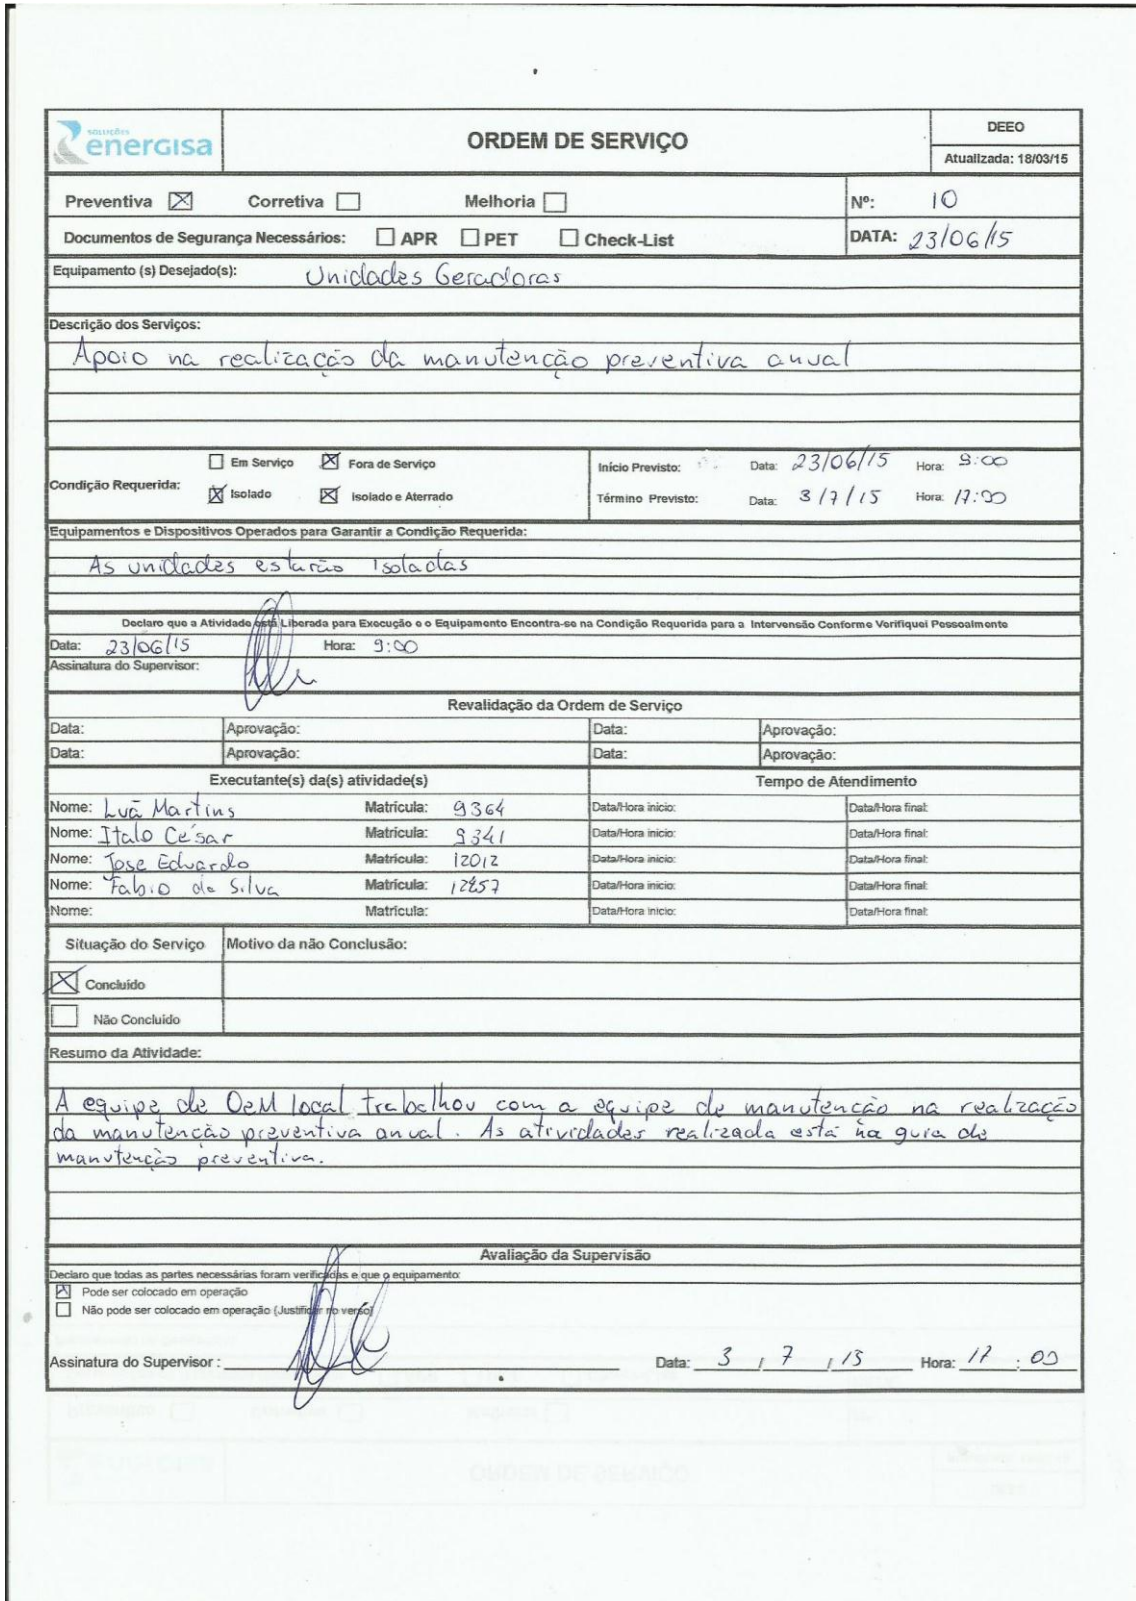 soluções
energisa
ORDEM DE SERVIÇO
DEEO
Atualizada: 18/03/15
Preventiva Corretiva Melhoria
Nº: 10
Documentos de Segurança Necessários: APR PET Check-List
DATA: 23/06/15
Equipamento (s) Desejado(s): Unidades Geradoras
Descrição dos Serviços:
Apoio na realização da manutenção preventiva anual
Condição Requerida:
Em Serviço Fora de Serviço
Início Previsto: Data: 23/06/15 Hora: 9:00
Isolado Isolado e Aterrado
Término Previsto: Data: 3/7/15 Hora: 17:00
Equipamentos e Dispositivos Operados para Garantir a Condição Requerida:
As unidades estarão Isoladas
Declaro que a Atividade está Liberada para Execução e o Equipamento Encontra-se na Condição Requerida para a Intervensão Conforme Verifiquei Pessoalmente
Data: 23/06/15 Hora: 9:00
Assinatura do Supervisor:
Revalidação da Ordem de Serviço
Data: Aprovação: Data: Aprovação:
Data: Aprovação: Data: Aprovação:
Executante(s) da(s) atividade(s) Tempo de Atendimento
Nome: Luã Martins Matrícula: 9364 Data/Hora inicio: Data/Hora final:
Nome: Italo César Matrícula: 9341 Data/Hora inicio: Data/Hora final:
Nome: Jose Eduardo Matrícula: 12012 Data/Hora inicio: Data/Hora final:
Nome: Fabio da Silva Matrícula: Data/Hora inicio: Data/Hora final:
Nome: Matrícula: Data/Hora inicio: Data/Hora final:
Situação do Serviço Motivo da não Conclusão:
Concluído
Não Concluído
Resumo da Atividade:
A equipe de OeM local trabalhou com a equipe de manutenção na realização
da manutenção preventiva anual. As atividades realizada está na guia de
manutenção preventiva.
Avaliação da Supervisão
Declaro que todas as partes necessárias foram verificadas e que o equipamento:
Pode ser colocado em operação
Não pode ser colocado em operação (Justificar no verso)
Assinatura do Supervisor : Data: 3 / 7 / 15 Hora: 17 : 00